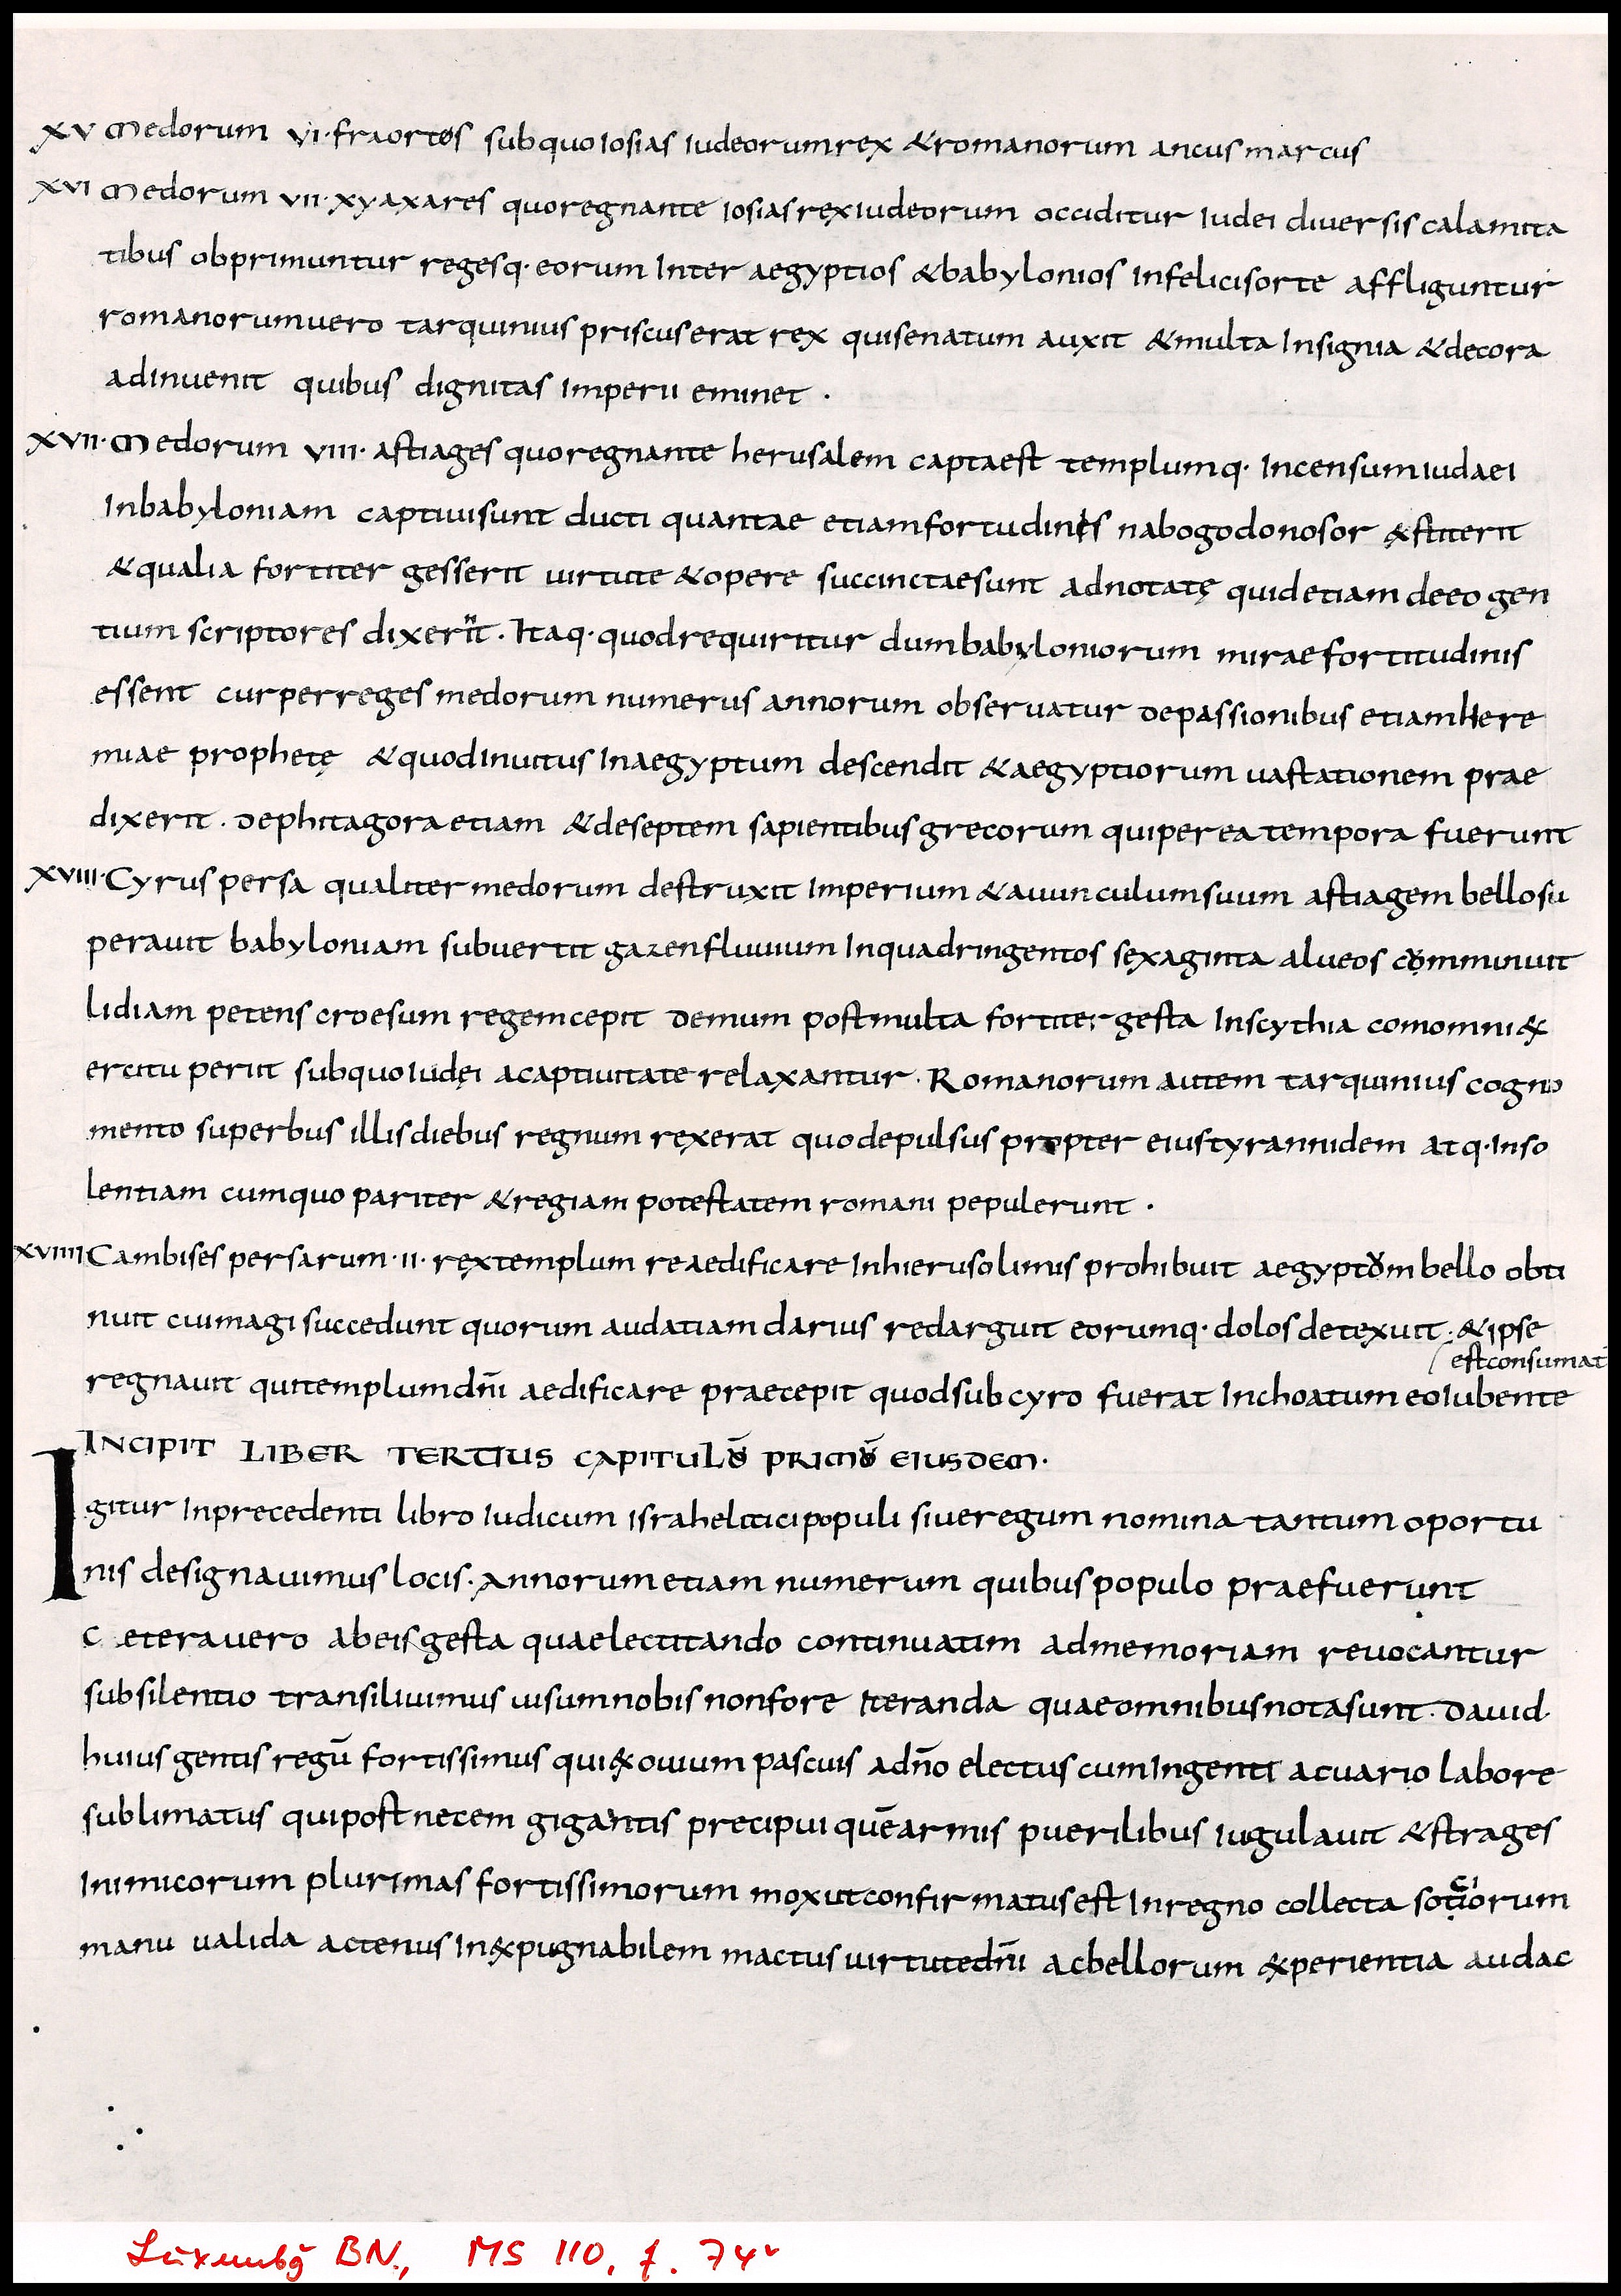 XV Medorum VI· fraortes sub quo Iosias Iudeorum rex & romanorum ancus marcus
XVI Medorum VII· xyaxares quo regnante Iosias rex Iudeorum occiditur Iudei diversis calamita
tibus obprimuntur regesq· eorum Inter aegyptios & babylonios Infelici sorte affliguntur
romanorum uero tarquinius priscus erat rex qui senatum auxit & multa Insignia & decora
adinuenit quibus dignitas Imperii eminet ·
XVII· Medorum VIII· astiages quo regnante herusalem capta est templumq· Incensum iudaei
In babyloniam captiui sunt ducti quantae etiam fortudinis nabogodonosor &stiterit
& qualia fortiter gesserit uirtute & opere succinctae sunt adnotatę quid etiam de eo gen
tium scriptores dixerīt · Itaq· quod requiritur dum babyloniorum mirae fortitudinis
essent cur per reges medorum numerus annorum obseruatur De passionibus etiam Hiere
miae prophetę & quod Inuitus In aegyptum descendit & aegyptiorum uastationem prae
dixerit · De phitagora etiam & de septem sapientibus grecorum qui per ea tempora fuerunt
XVIII· Cyrus persa qualiter medorum destruxit Imperium & auunculum suum astiagem bello su
perauit babyloniam subuertit gazen fluuium In quadringentos sexaginta alueos comminuit
lidiam petens croesum regem cepit Demum post multa fortiter gesta In scythia com omni &
ercitu periit sub quo Iudęi a captiuitate relaxantur · Romanorum autem tarquinius cogno
mento superbus illis diebus regnum rexerat quo depulsus propter eius tyrannidem atq· Inso
lentiam cum quo pariter & regiam potestatem romani pepulerunt ·
XVIIII Cambises persarum · II · rex templum reaedificare In hierusolimis prohibuit aegyptom bello obti
nuit cui magi succedunt quorum audatiam darius redarguit eorumq· dolos detexuit · & ipse
est consumat
regnauit qui templum dn̄i aedificare praecepit quod sub cyro fuerat Inchoatum eo Iubente
INCIPIT LIBER TERTIUS CAPITULŌ PRIMŌ EIUSDEM·
Igitur In precedenti libro Iudicum Israhelitici populi siue regum nomina tantum oportu
nis designauimus locis · Annorum etiam numerum quibus populo praefuerunt
c etera uero ab eis gesta quae lectitando continuatim ad memoriam reuocantur
sub silentio transiliuimus uisum nobis non fore Iteranda quae omnibus nota sunt · Dauid·
huius gentis regū fortissimus qui &ouium pascuis a dn̄o electus cum Ingenti acuario labore
sublimatus qui post necem gigantis precipui quē armis puerilibus Iugulauit & strages
Inimicorum plurimas fortissimorum mox ut confirmatus est In regno collecta sotiorum
manu ualida actenus In&pugnabilem mactus uirtute dn̄i ac bellorum &perientia audac
Luxembg BN., MS 110, f. 74ᵛ